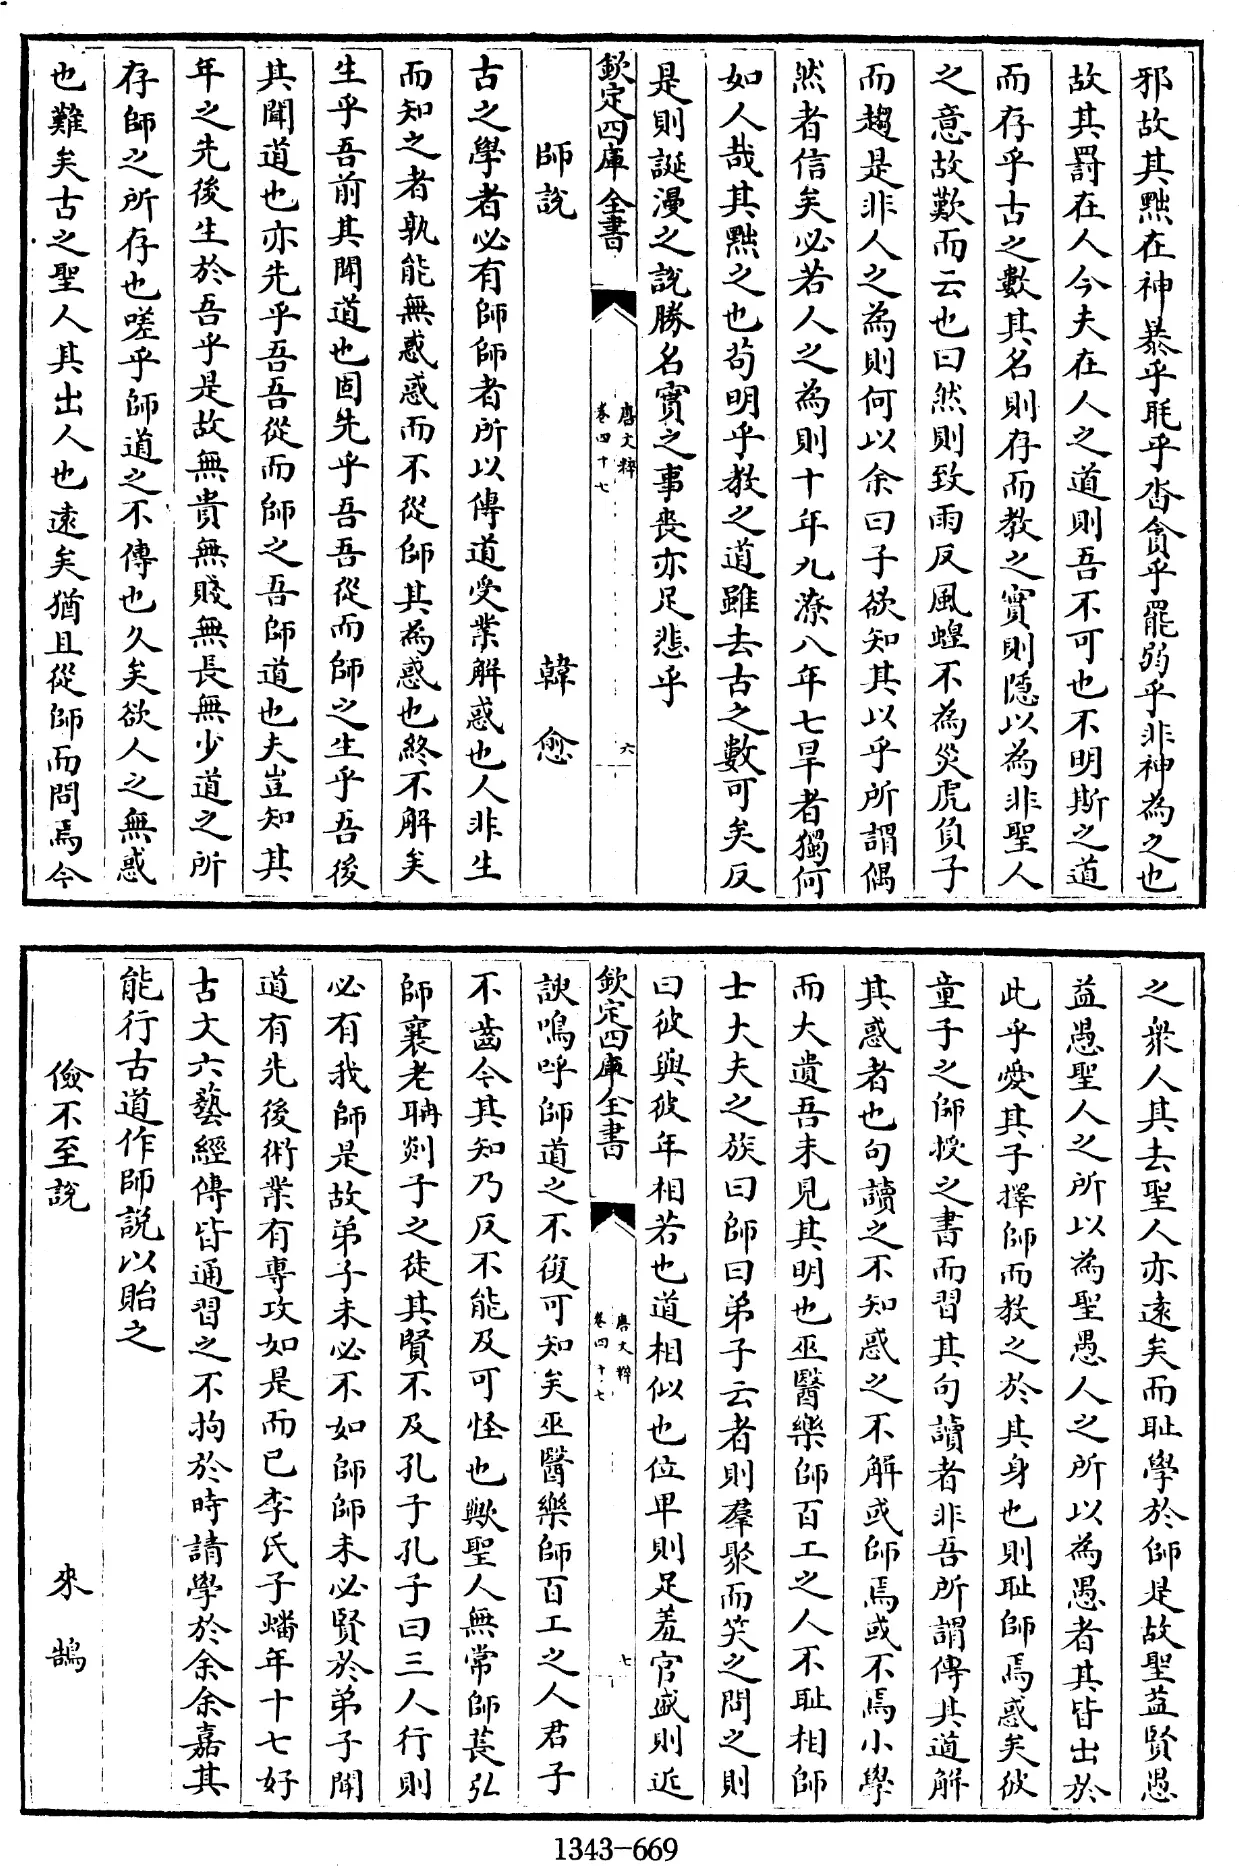 邪故其黜在神暴乎眊乎沓貪乎罷弱乎非神為之也
故其罰在人今夫在人之道則吾不可也不明斯之道
而存乎古之數其名則存而教之實則隱以為非聖人
之意故歎而云也曰然則致雨反風蝗不為災虎負子
而趨是非人之為則何以余曰子欲知其以乎所謂偶
然者信矣必若人之為則十年九潦八年七旱者獨何
如人哉其黜之也苟明乎教之道雖去古之數可矣反
是則誕漫之說勝名實之事喪亦足悲乎
欽定四庫全書
唐文粹
卷四十七
六
師說 韓愈
古之學者必有師師者所以傳道受業解惑也人非生
而知之者孰能無惑惑而不從師其為惑也終不解矣
生乎吾前其聞道也固先乎吾吾從而師之生乎吾後
其聞道也亦先乎吾吾從而師之吾師道也夫豈知其
年之先後生於吾乎是故無貴無賤無長無少道之所
存師之所存也嗟乎師道之不傳也久矣欲人之無惑
也難矣古之聖人其出人也遠矣猶且從師而問焉今
之衆人其去聖人亦遠矣而耻學於師是故聖益賢愚
益愚聖人之所以為聖愚人之所以為愚者其皆出於
此乎愛其子擇師而教之於其身也則耻師焉惑矣彼
童子之師授之書而習其句讀者非吾所謂傳其道解
其惑者也句讀之不知惑之不解或師焉或不焉小學
而大遺吾未見其明也巫醫樂師百工之人不耻相師
士大夫之族曰師曰弟子云者則羣聚而笑之問之則
曰彼與彼年相若也道相似也位卑則足羞官盛則近
欽定四庫全書
唐文粹
卷四十七
七
諛嗚呼師道之不復可知矣巫醫樂師百工之人君子
不齒今其知乃反不能及可怪也歟聖人無常師萇弘
師襄老聃郯子之徒其賢不及孔子孔子曰三人行則
必有我師是故弟子未必不如師師未必賢於弟子聞
道有先後術業有專攻如是而已李氏子蟠年十七好
古文六藝經傳皆通習之不拘於時請學於余余嘉其
能行古道作師說以貽之
儉不至說 來鵠
1343-669